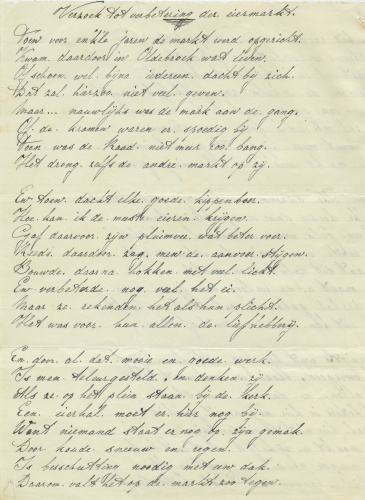 Verzoek tot verbetering der eiermarkt.
Toen voor enk'le jaren de markt werd opgericht.
Kwam daardoor in Oldebroek wat leven.
Ofschoon wel bijna iedereen dacht bij zich.
Dat zal hierzoo niet veel geven.
Maar... nauwlijks was de mark aan de gang.
Of de kramen waren er spoedig bij
Toen was de Raad niet meer zoo bang.
Het drong zelfs de andre markt op zij.
En toen dacht elke goede kippenboer.
Hoe kan ik de meeste eieren krijgen.
Gaf daarvoor zijn pluimvee wat beter voer.
Reeds daardoor zag men de aanvoer stijgen.
Bouwde daarna hokken met veel licht.
En verbeterde nog veel het ei.
Maar ze rekenden het als hun plicht.
Het was voor hun allen de liefhebberij.
En door al dat mooie en goede werk.
Is men teleurgesteld en denken zij
Als ze op het plein staan bij de kerk.
Een eierhal moet er hier nog bij.
Want niemand staat er nog op zijn gemak.
Door koude sneeuw en regen.
Is beschutting noodig met uw dak.
Daarom valt het op de markt zoo tegen.